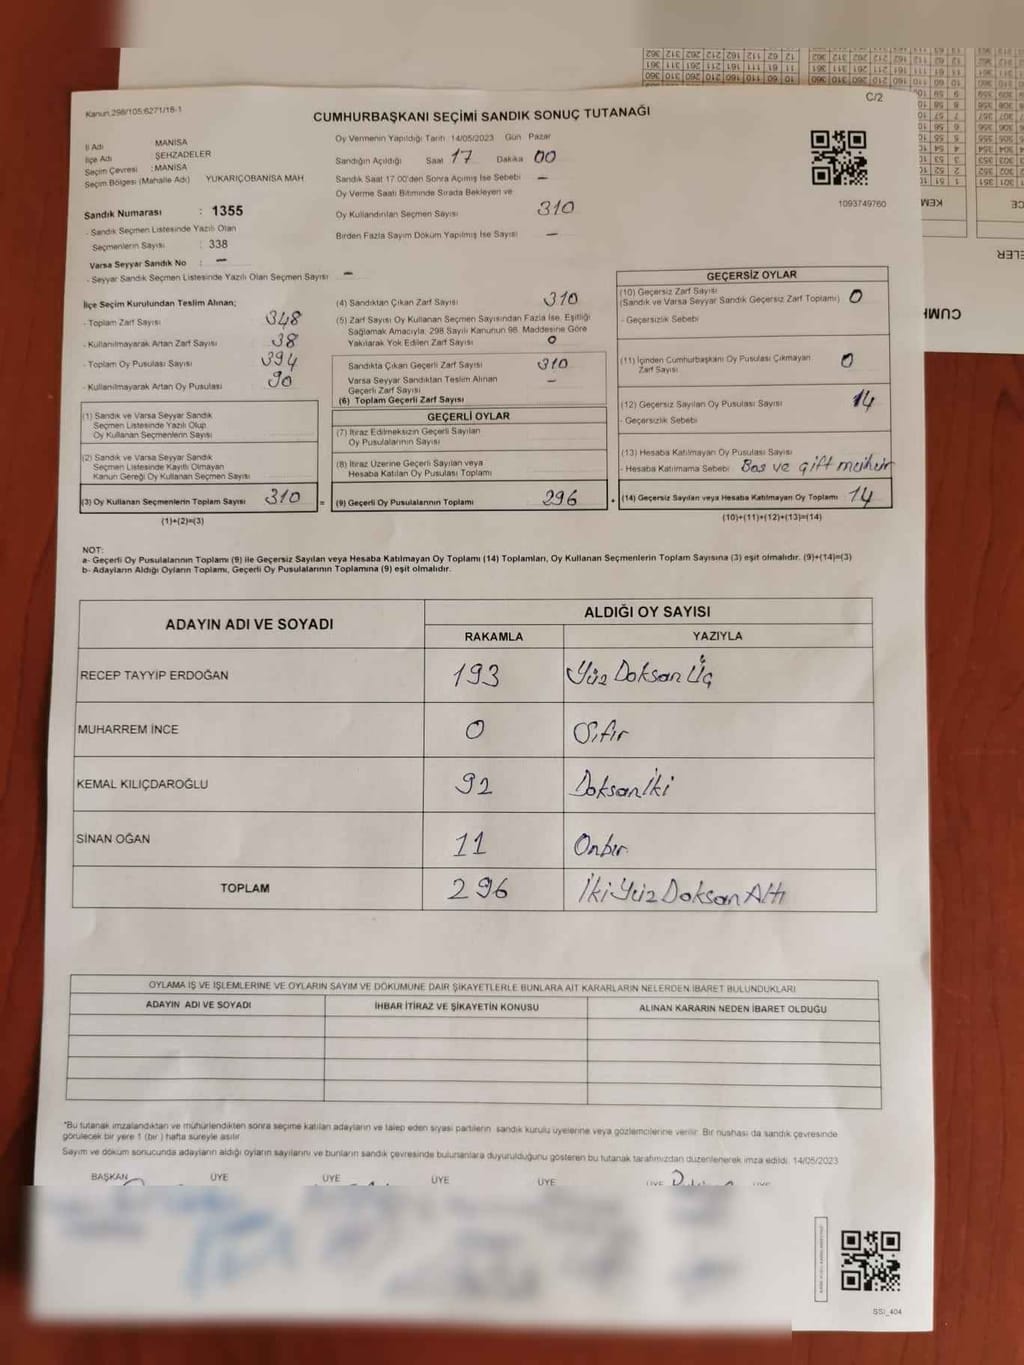 Kanun.298/105;6271/18-1
C/2
CUMHURBAŞKANI SEÇİMİ SANDIK SONUÇ TUTANAĞI
İl Adı MANİSA
İlçe Adı ŞEHZADELER
Seçim Çevresi :MANİSA
Seçim Bölgesi (Mahalle Adı) YUKARIÇOBANİSA MAH
Sandık Numarası : 1355
- Sandık Seçmen Listesinde Yazılı Olan
Seçmenlerin Sayısı : 338
Varsa Seyyar Sandık No : -
- Seyyar Sandık Seçmen Listesinde Yazılı Olan Seçmen Sayısı -
Oy Vermenin Yapıldığı Tarih 14/05/2023 Gün Pazar
Sandığın Açıldığı Saat 17 Dakika 00
Sandık Saat 17.00'den Sonra Açılmış İse Sebebi -
Oy Verme Saati Bitiminde Sırada Bekleyen ve
Oy Kullandırılan Seçmen Sayısı 310
Birden Fazla Sayım Döküm Yapılmış İse Sayısı -
1093749760
İlçe Seçim Kurulundan Teslim Alınan;
- Toplam Zarf Sayısı 348
- Kullanılmayarak Artan Zarf Sayısı 38
- Toplam Oy Pusulası Sayısı 394
- Kullanılmayarak Artan Oy Pusulası 90
(1) Sandık ve Varsa Seyyar Sandık
Seçmen Listesinde Yazılı Olup
Oy Kullanan Seçmenlerin Sayısı
(2) Sandık ve Varsa Seyyar Sandık
Seçmen Listesinde Kayıtlı Olmayan
Kanun Gereği Oy Kullanan Seçmen Sayısı
(3) Oy Kullanan Seçmenlerin Toplam Sayısı 310 =
(1)+(2)=(3)
(4) Sandıktan Çıkan Zarf Sayısı 310
(5) Zarf Sayısı Oy Kullanan Seçmen Sayısından Fazla İse, Eşitliği
Sağlamak Amacıyla, 298 Sayılı Kanunun 98. Maddesine Göre
Yakılarak Yok Edilen Zarf Sayısı 0
Sandıkta Çıkan Geçerli Zarf Sayısı 310
Varsa Seyyar Sandıktan Teslim Alınan
Geçerli Zarf Sayısı -
(6) Toplam Geçerli Zarf Sayısı
GEÇERLİ OYLAR
(7) İtiraz Edilmeksizin Geçerli Sayılan
Oy Pusulalarının Sayısı
(8) İtiraz Üzerine Geçerli Sayılan veya
Hesaba Katılan Oy Pusulası Toplamı
(9) Geçerli Oy Pusulalarının Toplamı 296 +
GEÇERSİZ OYLAR
(10) Geçersiz Zarf Sayısı
(Sandık ve Varsa Seyyar Sandık Geçersiz Zarf Toplamı) 0
- Geçersizlik Sebebi
(11) İçinden Cumhurbaşkanı Oy Pusulası Çıkmayan
Zarf Sayısı 0
(12) Geçersiz Sayılan Oy Pusulası Sayısı 14
- Geçersizlik Sebebi
(13) Hesaba Katılmayan Oy Pusulası Sayısı
- Hesaba Katılmama Sebebi Boş ve çift mühür
(14) Geçersiz Sayılan veya Hesaba Katılmayan Oy Toplamı 14
(10)+(11)+(12)+(13)=(14)
NOT:
a- Geçerli Oy Pusulalarının Toplamı (9) ile Geçersiz Sayılan veya Hesaba Katılmayan Oy Toplamı (14) Toplamları, Oy Kullanan Seçmenlerin Toplam Sayısına (3) eşit olmalıdır. (9)+(14)=(3)
b- Adayların Aldığı Oyların Toplamı, Geçerli Oy Pusulalarının Toplamına (9) eşit olmalıdır.
ADAYIN ADI VE SOYADI ALDIĞI OY SAYISI
RAKAMLA YAZIYLA
RECEP TAYYİP ERDOĞAN 193 Yüz Doksan Üç
MUHARREM İNCE 0 Sıfır
KEMAL KILIÇDAROĞLU 92 Doksan İki
SİNAN OĞAN 11 Onbir
TOPLAM 296 İki Yüz Doksan Altı
OYLAMA İŞ VE İŞLEMLERİNE VE OYLARIN SAYIM VE DÖKÜMÜNE DAİR ŞİKAYETLERLE BUNLARA AİT KARARLARIN NELERDEN İBARET BULUNDUKLARI
ADAYIN ADI VE SOYADI İHBAR İTİRAZ VE ŞİKAYETİN KONUSU ALINAN KARARIN NEDEN İBARET OLDUĞU
*Bu tutanak imzalandıktan ve mühürlendikten sonra seçime katılan adayların ve talep eden siyasi partilerin sandık kurulu üyelerine veya gözlemcilerine verilir. Bir nüshası da sandık çevresinde
görülecek bir yere 1 (bir ) hafta süreyle asılır.
Sayım ve döküm sonucunda adayların aldığı oyların sayılarını ve bunların sandık çevresinde bulunanlara duyurulduğunu gösteren bu tutanak tarafımızdan düzenlenerek imza edildi. 14/05/2023
BAŞKAN ÜYE ÜYE ÜYE ÜYE ÜYE ÜYE
SSİ_404